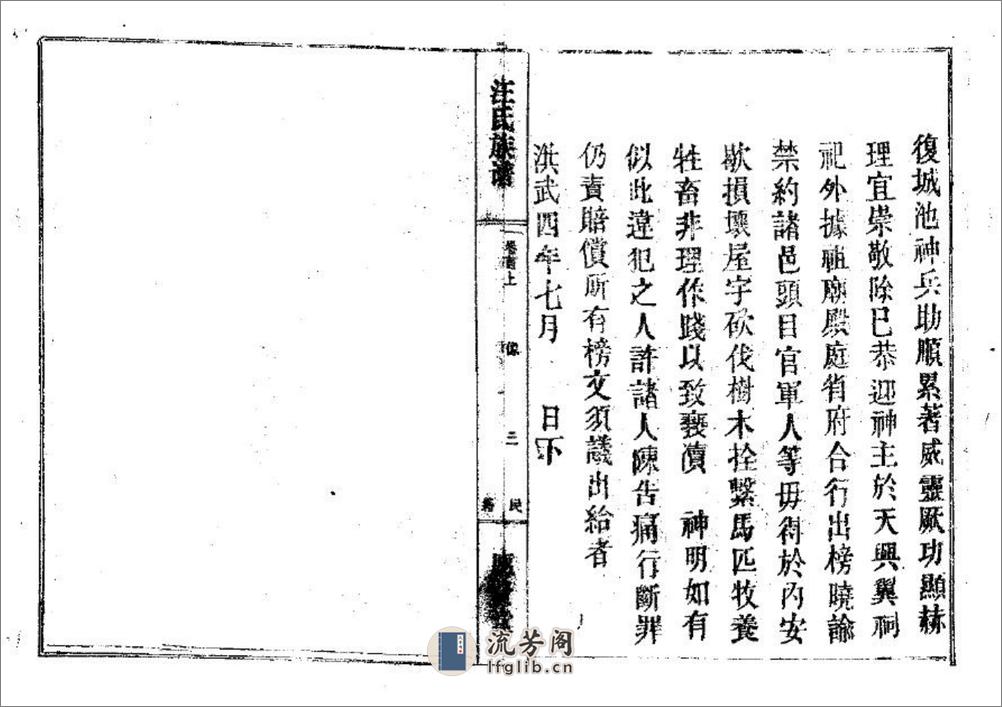 復城池神兵助順累著威靈厥功顯赫
理宜崇敬除已恭迎神主於天興翼祠
祀外據祖廟殿庭省府合行出榜曉諭
禁約諸邑頭目官軍人等毋得於內安
歇損壞屋宇砍伐樹木拴繫馬匹牧養
牲畜非理作踐以致褻瀆　神明如有
似此違犯之人許諸人陳告痛行斷罪
仍責賠償所有榜文須議出給者
洪武四年七月　日下
汪氏族譜
卷首上
像
三
民
流芳阁
lfglib.cn